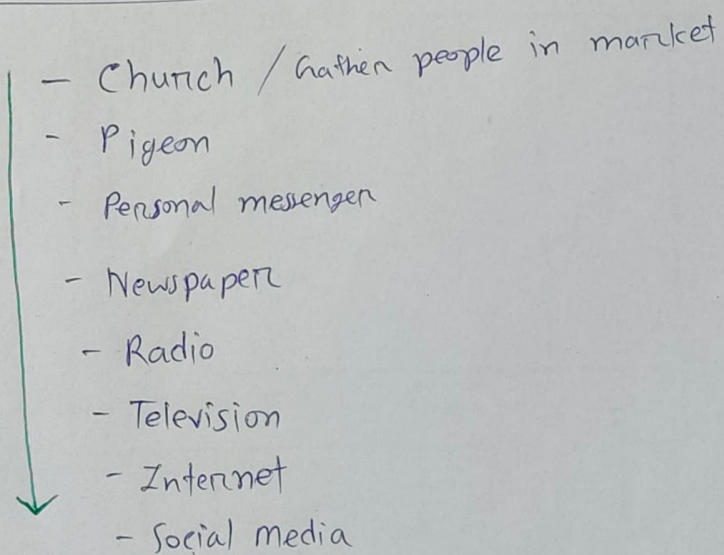 - Church / Gather people in market
- Pigeon
- Personal messenger
- Newspaper
- Radio
- Television
- Internet
- Social media